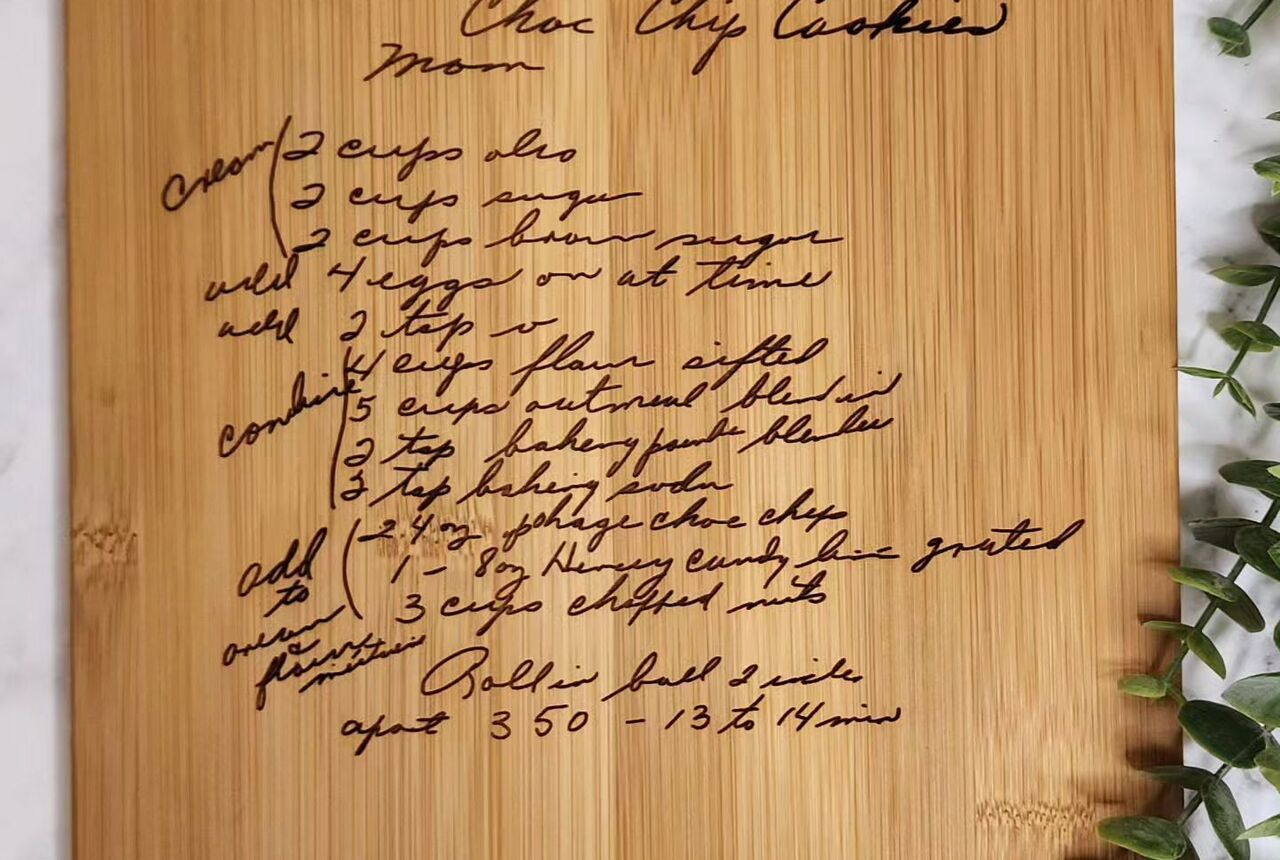 Choc Chip Cookies
Mom
Cream 2 cups oleo
2 cups sugar
2 cups brown sugar
add 4 eggs on at time
add 2 tsp v
combine 4 cups flour sifted
5 cups outmeal blend in
2 tsp baking powder blender
2 tsp baking soda
add to cream & flour mixture
24 oz pkage choc chip
1 - 8 oz Hersey candy bar grated
3 cups chopped nuts
Roll in ball 2 inches
apart 350 - 13 to 14 min